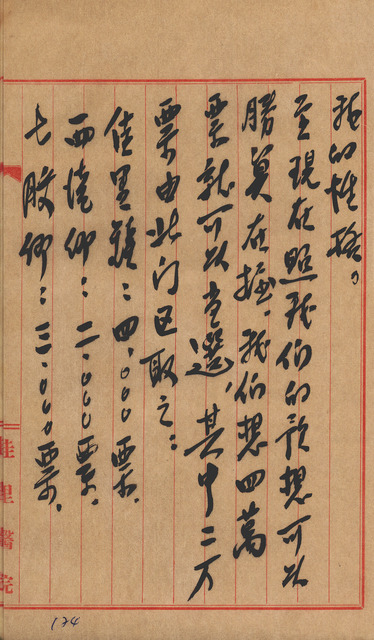 我的性格。
至現在照我们的預想可以
勝算在握，我们想四萬
票就可以当選，其中二万
票由北门区取之：
佳里鎮：四.000票.
西港仰：二.000票.
七股仰：三.000票.
佳里醫院
134